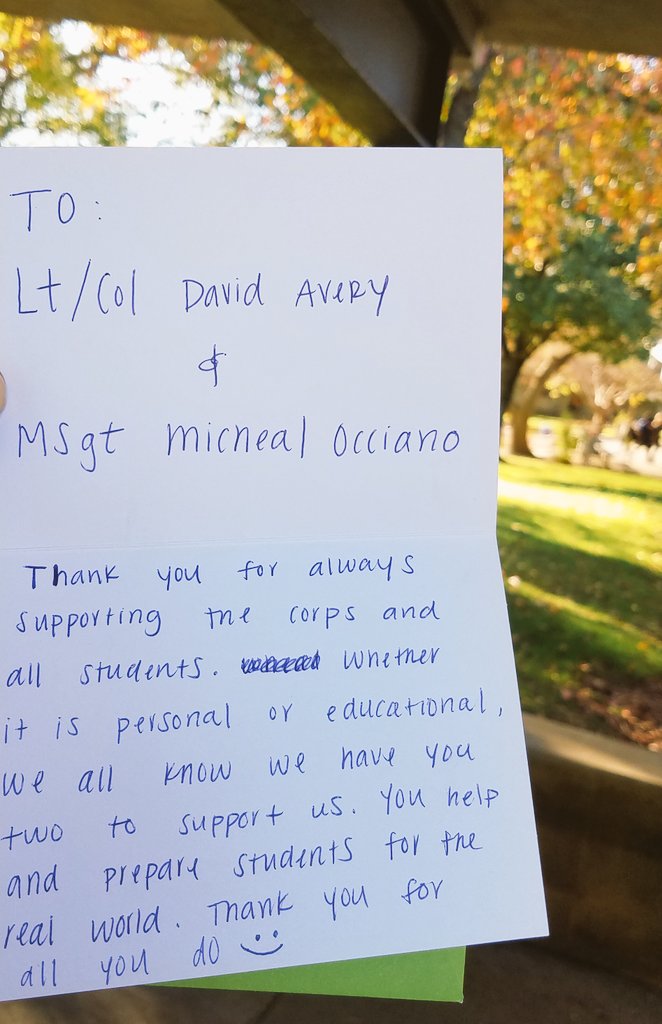 TO:
Lt/Col David Avery
&
MSgt Micheal Occiano
Thank you for always
supporting the corps and
all students. Whether
it is personal or educational,
we all know we have you
two to support us. You help
and prepare students for the
real world. Thank you for
all you do